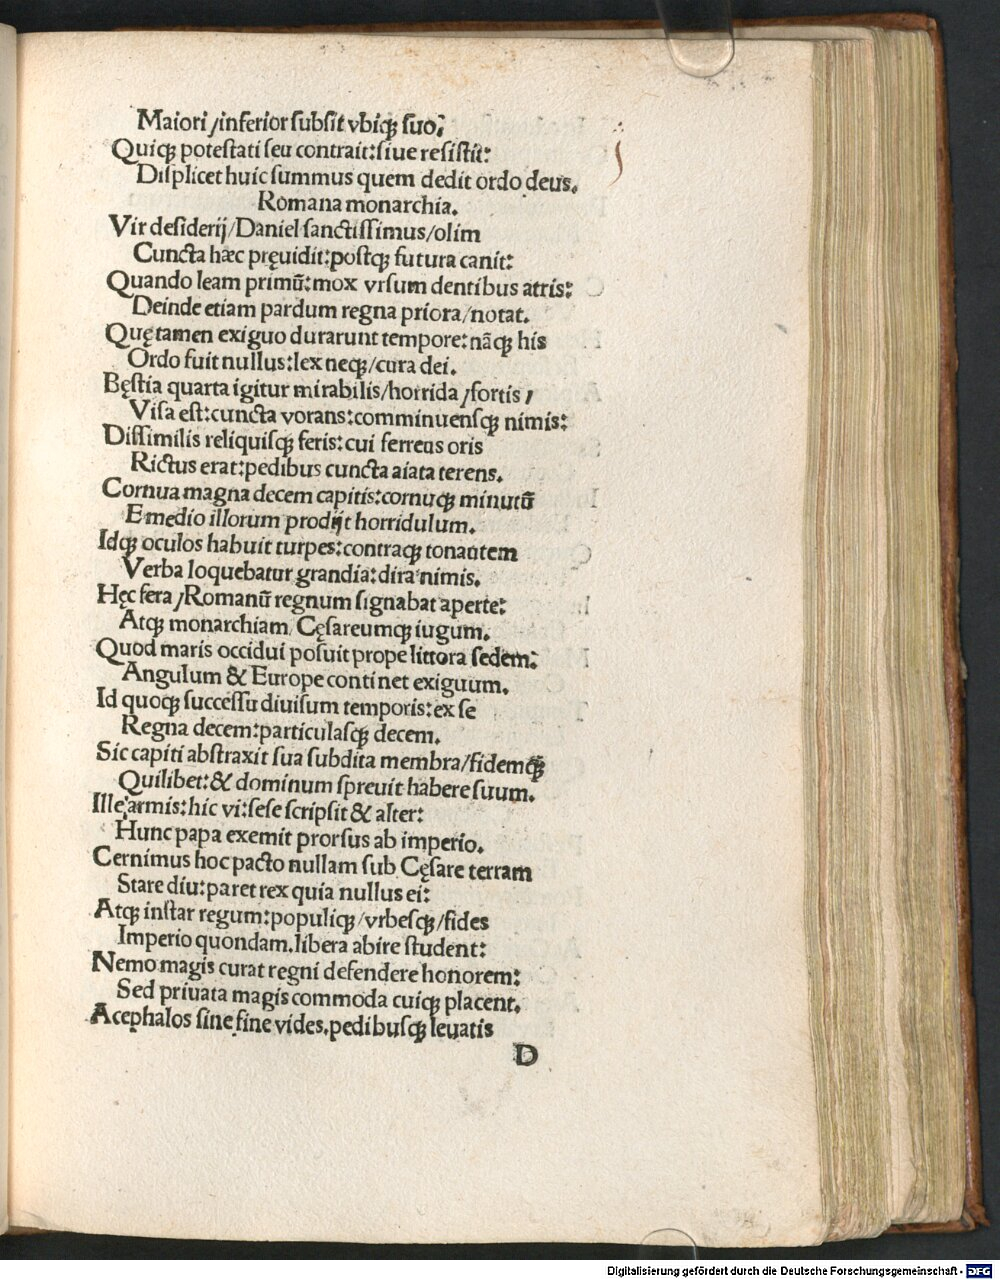 Maiori /inferior ſubſit vbiqꝫ ſuo:
Quiqꝫ poteſtati ſeu contrait:ſiue reſiſtit:
Diſplicet huic ſummus quem dedit ordo deus.
Romana monarchia.
Vir deſiderij/Daniel ſanctiſſimus/olim
Cuncta hæc pręuidit:poſtqꝫ futura canit:
Quando leam primū:mox vrſum dentibus atris:
Deinde etiam pardum regna priora/notat.
Quę tamen exiguo durarunt tempore:nāqꝫ his
Ordo fuit nullus:lex neqꝫ/cura dei.
Bęſtia quarta igitur mirabilis/horrida /fortis /
Viſa eſt:cuncta vorans:comminuenſqꝫ nimis:
Diſſimilis reliquiſqꝫ feris:cui ferreus oris
Rictus erat:pedibus cuncta aiata terens.
Cornua magna decem capitis:cornuqꝫ minutū
E medio illorum prodijt horridulum.
Idqꝫ oculos habuit turpes:contraqꝫ tonantem
Verba loquebatur grandia:dira nimis.
Hęc fera /Romanū regnum ſignabat aperte:
Atqꝫ monarchiam/Cęſareumqꝫ iugum.
Quod maris occidui poſuit prope littora ſedem:
Angulum & Europe continet exiguum.
Id quoqꝫ ſucceſſu diuiſum temporis:ex ſe
Regna decem:particulaſqꝫ decem.
Sic capiti abſtraxit ſua ſubdita membra/fidemqꝫ
Quilibet:& dominum ſpreuit habere ſuum.
Ille armis:hic vi:ſeſe ſcripſit & alter:
Hunc papa exemit prorſus ab imperio.
Cernimus hoc pacto nullam ſub Cęſare terram
Stare diu:paret rex quia nullus ei:
Atqꝫ inſtar regum:populiqꝫ/vrbeſqꝫ/fides
Imperio quondam.libera abire ſtudent:
Nemo magis curat regni defendere honorem:
Sed priuata magis commoda cuiqꝫ placent.
Acephalos ſine fine vides.pedibuſqꝫ leuatis
D
Digitalisierung gefördert durch die Deutsche Forschungsgemeinschaft - DFG